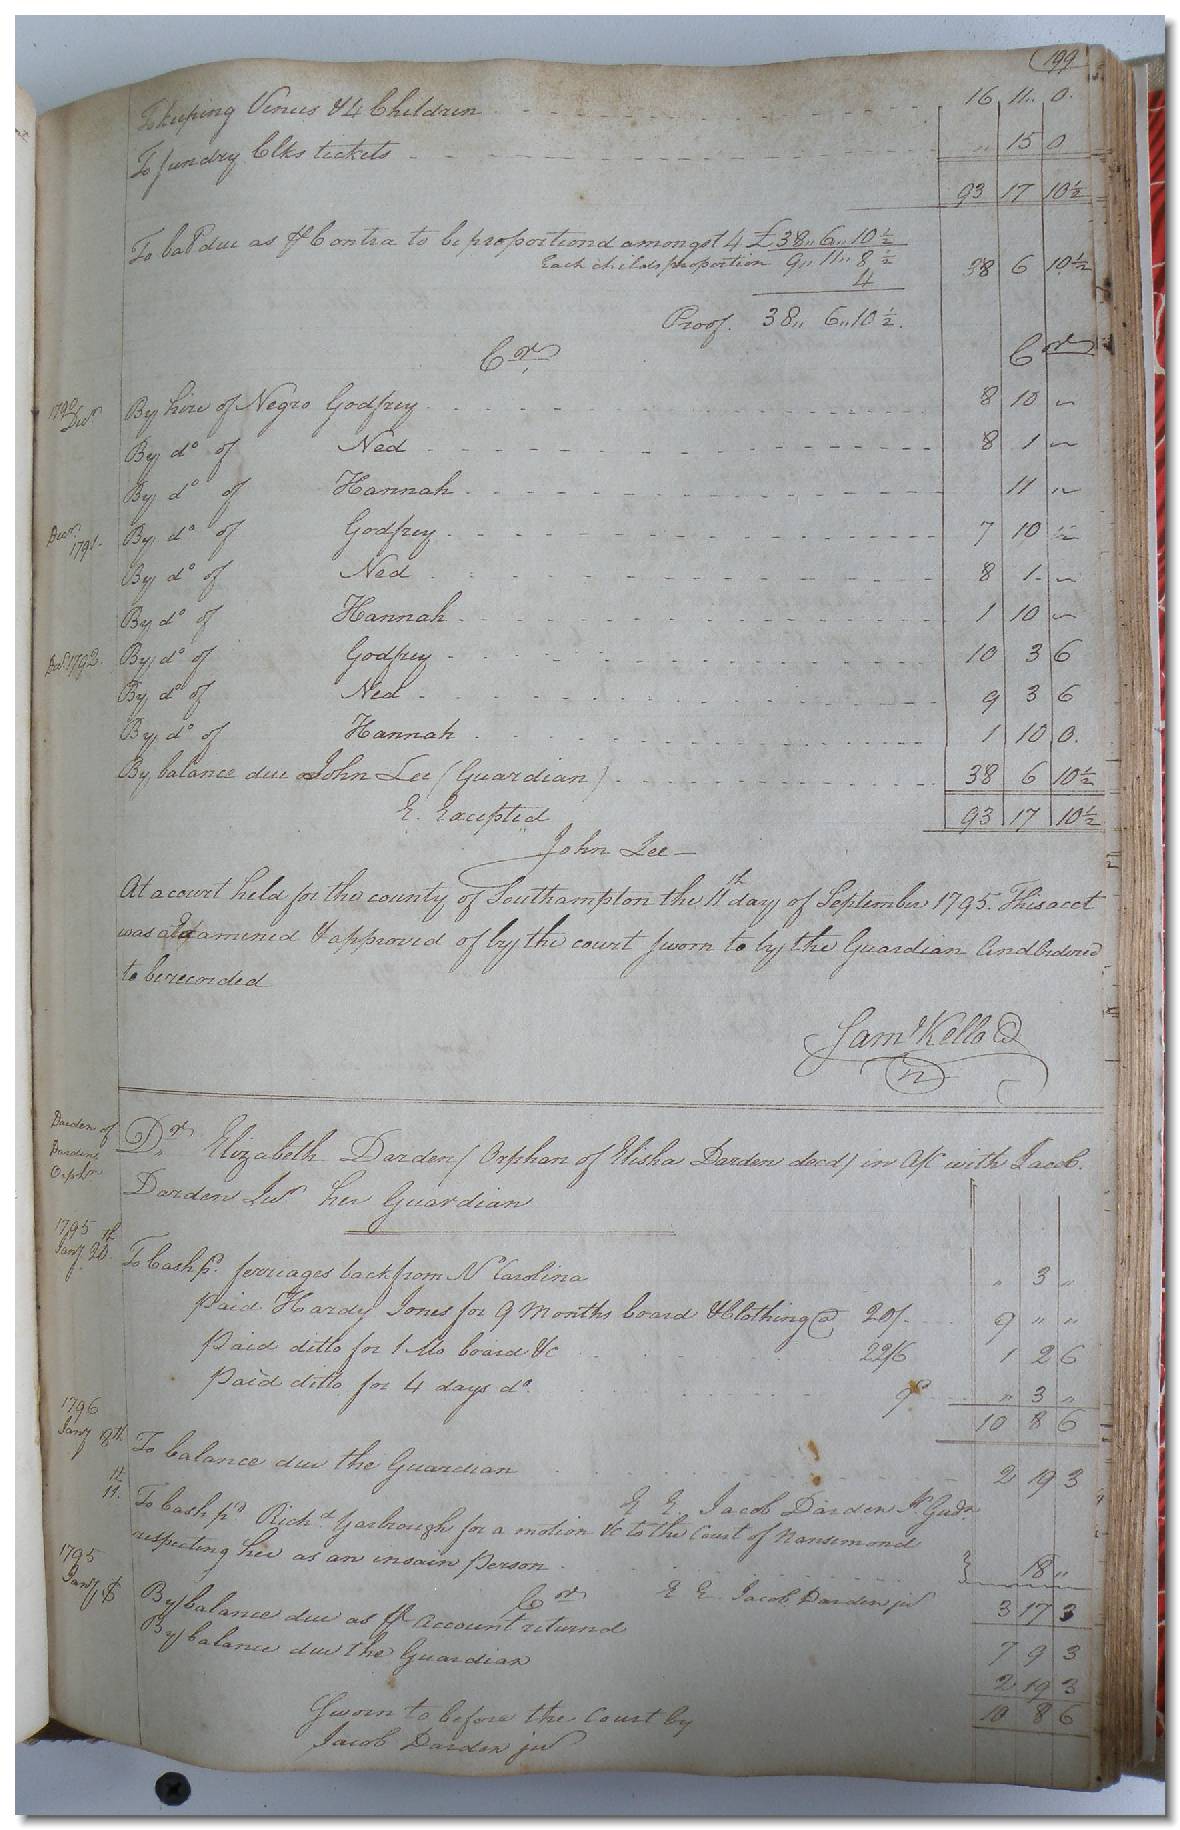 (199
To keeping Venus & 4 Children 16 11 0
To sundry Clks tickets " 15 0
93 17 10½
To balᵉ due as ⅌ Contra to be proportiond amongst 4 £38,, 6,, 10½
Each childs proportion 9,, 11,, 8½ 38 6 10½
4
Proof. 38,, 6,, 10½.
Cr. Cr
1790 Decr By hire of Negro Godfrey 8 10 ~
By do of Ned 8 1 ~
By do of Hannah 11 ~
Decr. 1791. By do of Godfrey 7 10
By do of Ned 8 1 ~
By do of Hannah 1 10 ~
1792. By do of Godfrey 10 3 6
By do of Ned 9 3 6
By do of Hannah 1 10 0.
By balance due John Lee (Guardian) 38 6 10½
E. Excepted 93 17 10½
John Lee
At a court held for the county of Southampton the 11th day of September 1795. This acct
was examined & approved of by the court sworn to by the Guardian And Ordered
to be recorded
Saml Kello
Darden of
Dardens
Orphn
Dr. Elizabeth Darden (Orphan of Elisha Darden decd) in a/c with Jacob
Darden Junr her Guardian
1795
Jany 20th To Cash pd. ferriages back from No Carolina " 3 "
paid Hardy Jones for 9 Months board & Clothing @ 20/. 9 " "
paid ditto for 1 Mo board &c 22/6 1 2 6
paid ditto for 4 days do. 9d " 3 "
10 8 6
1796
Jany To balance due the Guardian 2 19 3
E E Jacob Darden Jr Gudn
11. To Cash pd Richd Yarbrough for a motion &c to the Court of Nansemond
respecting her as an insain Person } 18 "
E E. Jacob Darden jur 3 17 3
1795
Jany Cr
By balance due as ⅌ Account returnd 7 9 3
By balance due the Guardian 2 19 3
10 8 6
Sworn to before the Court by
Jacob Darden jur